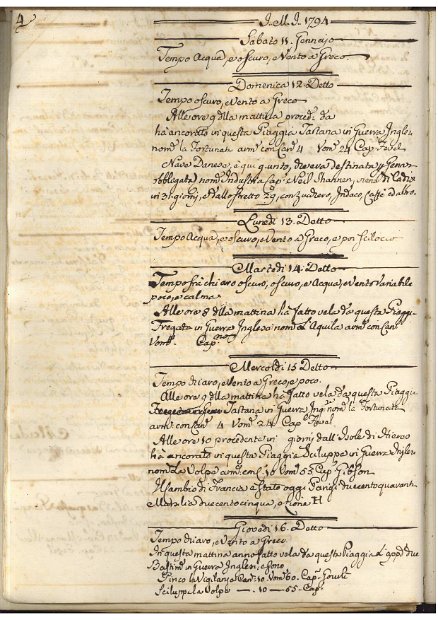 4
J.M.J. 1794
Sabato 11. Gennajo
Tempo Acqua, e oscuro, e Vento a Greco
Domenica 12. Detto
Tempo oscuro, e Vento a Greco
Alle ore 9 della mattina proced.
ha ancorato in questa Piaggia Tartana in Guerra Ingle.
nom. la Fortunate arm. con Can. 4 Vom. 24 Cap.
Nave Danese, è qui giunto, Destinata
nom. Industria Cap. Neil viene di
in 31 giorni, con Zucchero, Indaco, Caffè, ed altro.
Lunedì 13. Detto
Tempo Acqua, e oscuro, e Vento a Greco, e poi Scilocco
Martedì 14. Detto
Tempo frà chiaro oscuro, oscuro, e Acqua, e Vento Variabile
poco, e calma
Alle ore 8 della mattina ha fatto vela da questa Piaggi.
Fregata in Guerra Inglesa nom. l'Aquila arm. con Can.
Vom. Cap.
Mercoldì 15. Detto
Tempo chiaro, e Vento a Greco, e poco.
Alle ore 9 della mattina ha fatto vela da questa Piaggia
Tartana in Guerra Ing. nom. la Fortunate
arm. con Can. 4 Vom. 24 Cap.
Alle ore 10 procedente in giorni dall'Isole di Hieres
ha ancorato in questa Piaggia Sciluppe in Guerra Ingles.
nom. la Volpe arm. con C. 10 Vom. 55 Cap. Gibson
Il Cambio di Francia è stato oggi Parigi duecento quaranta
Marsilia duecento cinque, e Lione H
Giovedì 16. Detto
Tempo chiaro, e Vento a Greco
In questa mattina anno fatto vela da questa Piaggia
Bastim. in Guerra Inglesi, e sono
Pinco la Vigilanza Can. 10 Vom. 60 Cap.
Scilupp. la Volpe — 10 — 55 Cap.